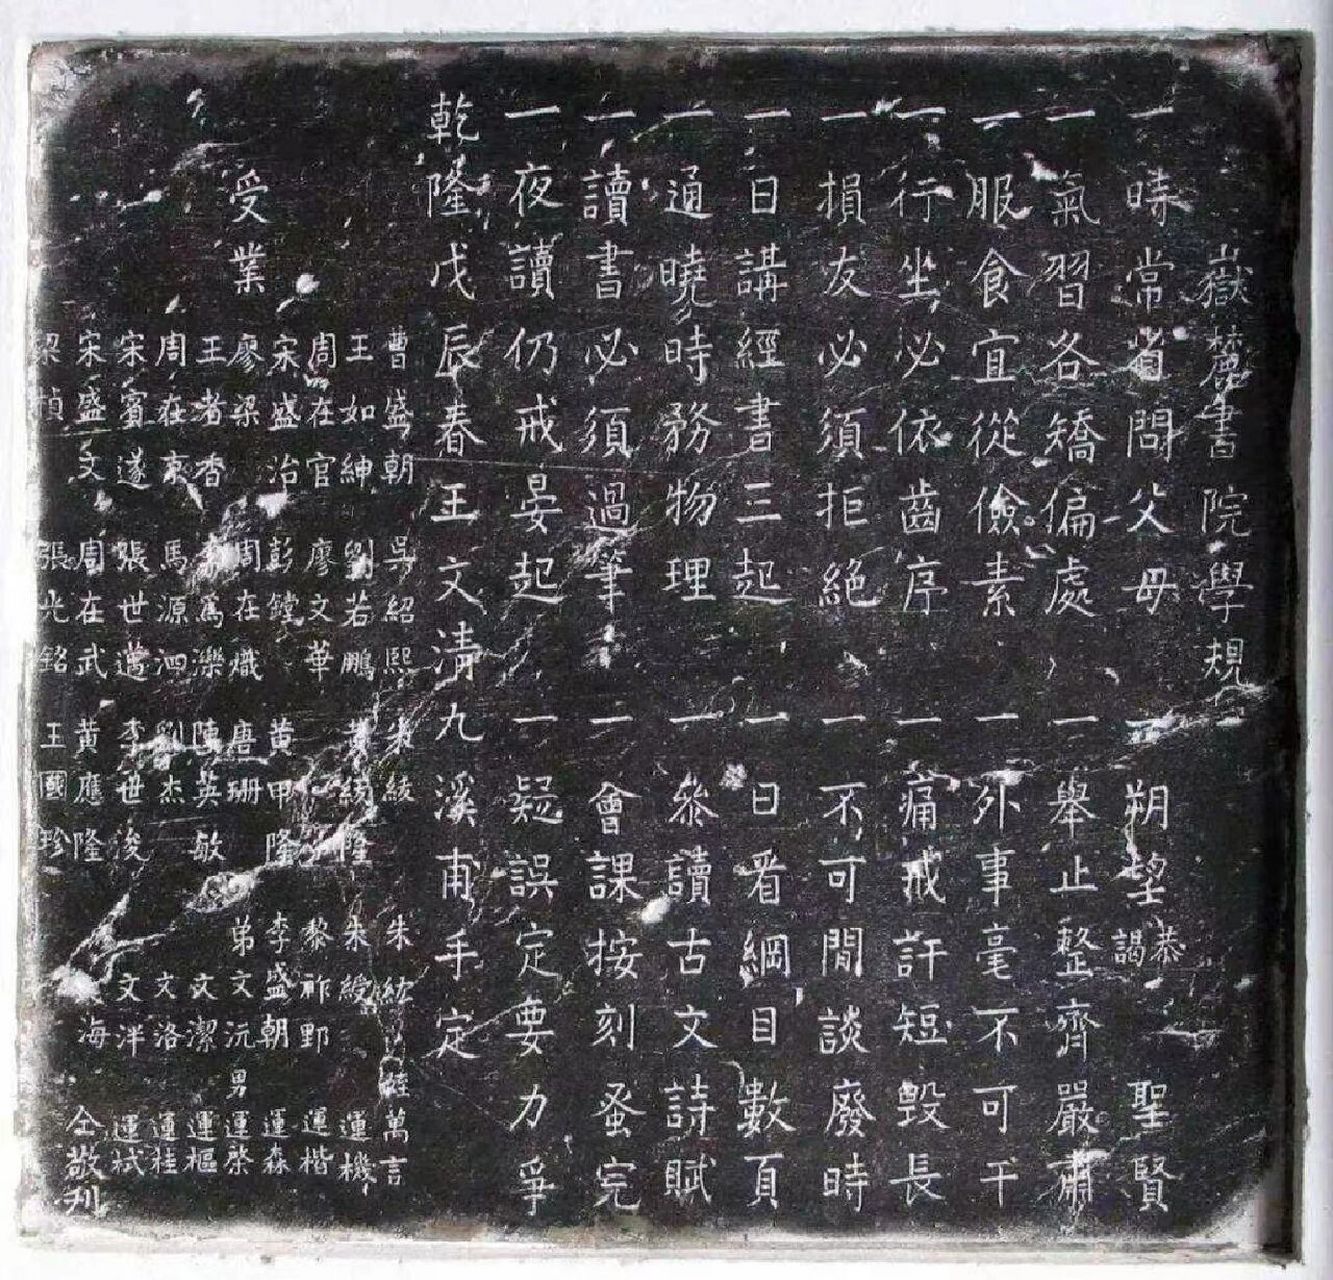 嶽麓書院學規
一時常省問父母 一朔望恭謁聖賢
一氣習各矯偏處 一舉止整齊嚴肅
一服食宜從儉素 一外事毫不可干
一行坐必依齒序 一痛戒訐短毀長
一損友必須拒絕 一不可閒談廢時
一日講經書三起 一日看綱目數頁
一通曉時務物理 一參讀古文詩賦
一讀書必須過筆 一會課按刻蚤完
一夜讀仍戒晏起 一疑誤定要力爭
乾隆戊辰春王文清九溪甫手定
受業
曹盛朝 吳紹熙 綾 朱紘 萬言
王如紳 劉若鵬 隆 朱綬 運機
周在官 廖文華 黎祚郢 運楷
宋盛治 彭鏜 黃甲隆 李盛朝 運森
廖梁 周在熾 唐珊 弟文沅 男運棨
王者香 為濼 陳英敏 文潔 運樞
周在東 馬源泗 劉杰 文洛 運桂
宋賓遂 張世邁 李世浚 文泮 運栻
宋盛文 周在武 黃應隆 海 仝敬刊
梁楨 張光銘 王國珍